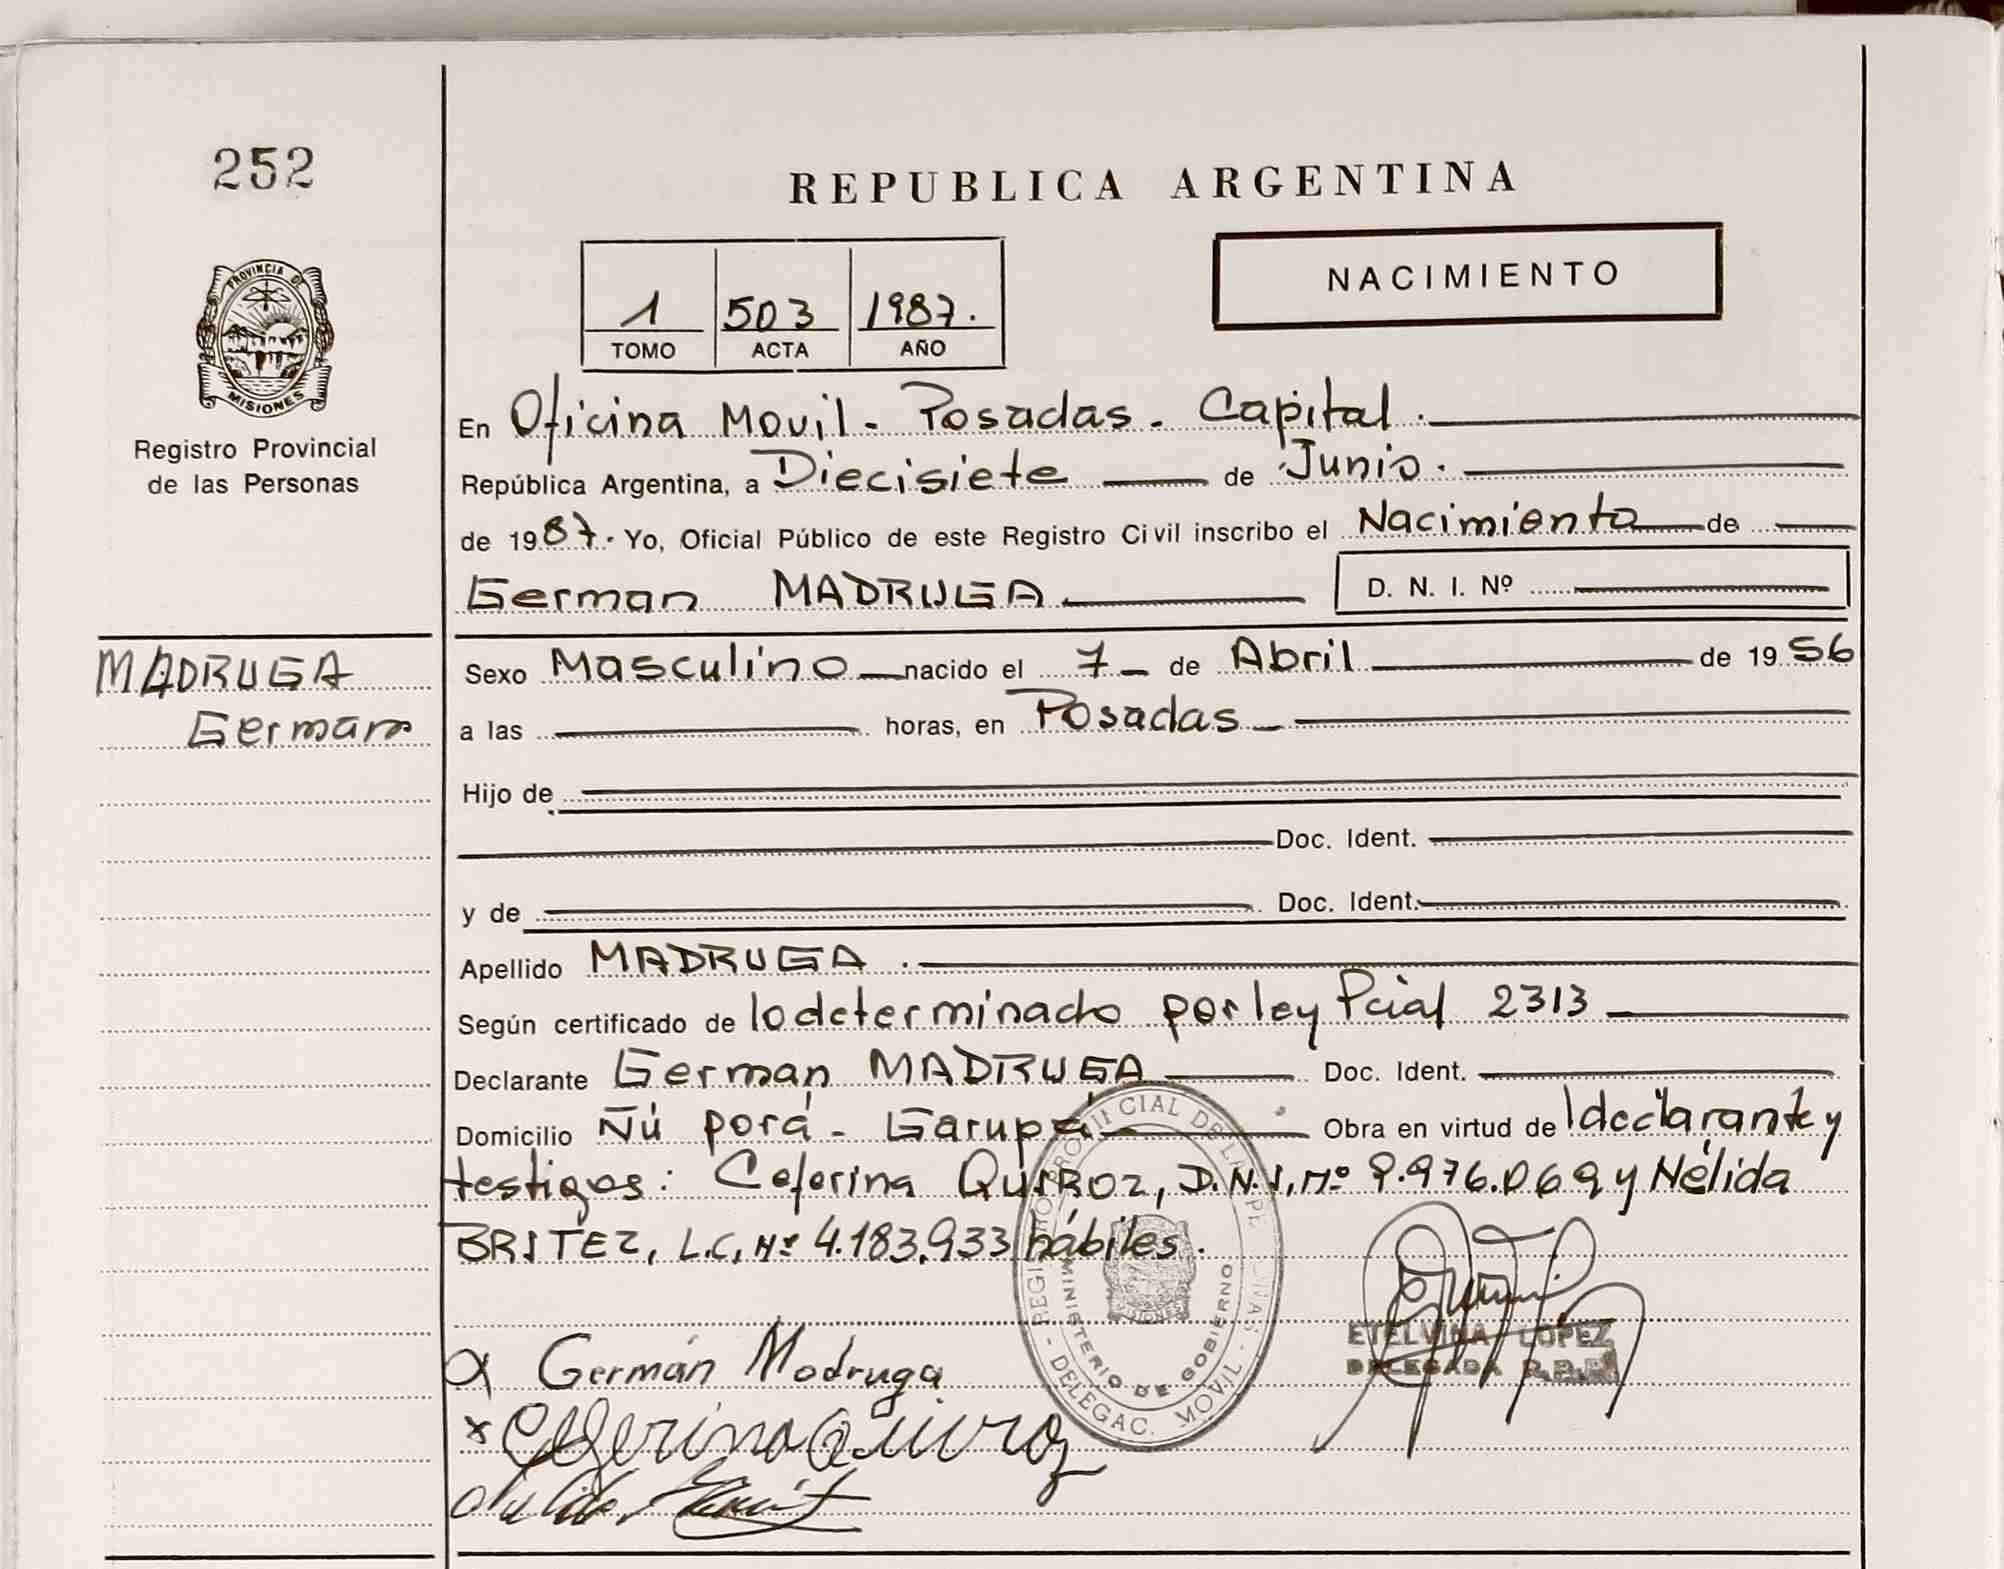 252
PROVINCIA DE
MISIONES
Registro Provincial
de las Personas
MADRUGA
German
REPUBLICA ARGENTINA
1 503 1987.
TOMO ACTA AÑO
NACIMIENTO
En Oficina Movil - Posadas - Capital.
República Argentina, a Diecisiete de Junio.
de 1987. Yo, Oficial Público de este Registro Civil inscribo el Nacimiento de
German MADRUGA D. N. I. Nº
Sexo Masculino nacido el 7 de Abril de 1956
a las horas, en Posadas
Hijo de
Doc. Ident.
y de Doc. Ident.
Apellido MADRUGA.
Según certificado de lo determinado por ley Pcial 2313
Declarante German MADRUGA Doc. Ident.
Domicilio Ñú porá - Garupá Obra en virtud de declarante y
testigos: Ceferina QUIROZ, D.N.I. Nº 9.976.069 y Nélida
BRITEZ, L.C. Nº 4.183.933 hábiles.
REGISTRO PROVINCIAL DE LAS PERSONAS - DELEGAC. MOVIL -
MINISTERIO DE GOBIERNO
MISIONES
ETELVINA LOPEZ
DELEGADA R.P.P.
Germán Madruga
x Ceferina Quiroz